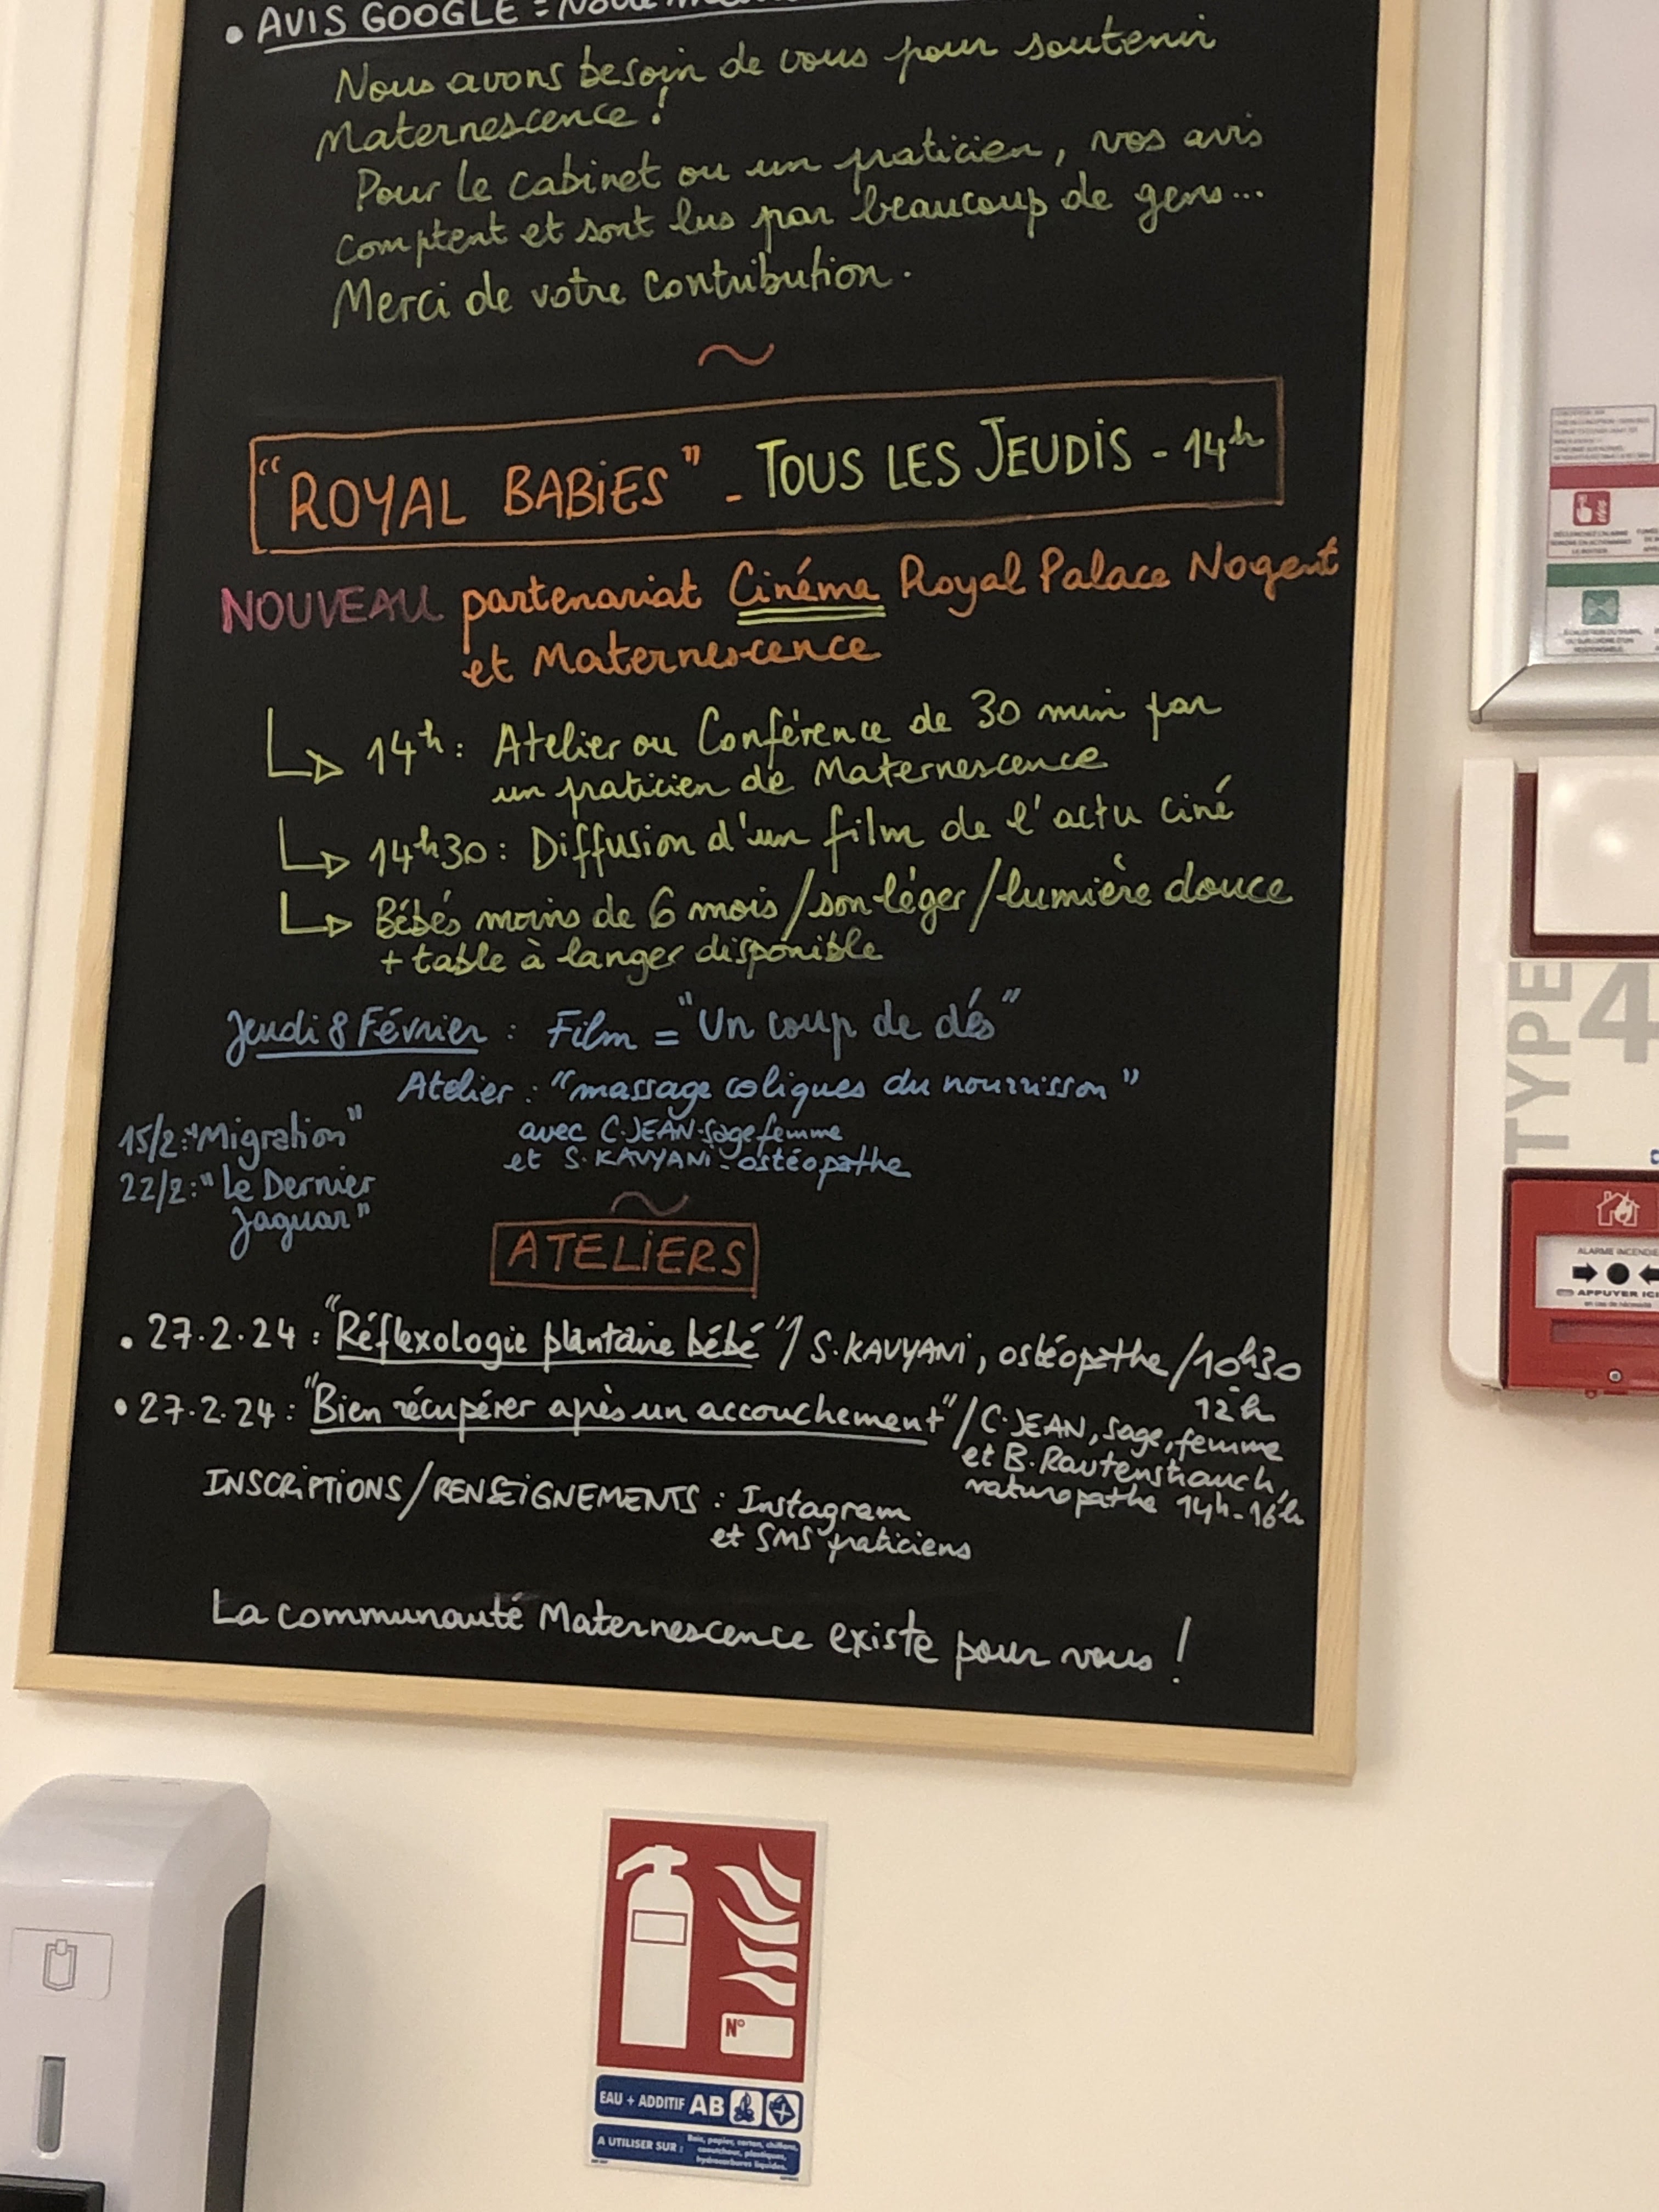 • AVIS GOOGLE = Nous
Nous avons besoin de vous pour soutenir
Maternescence !
Pour le cabinet ou un praticien, vos avis
comptent et sont lus par beaucoup de gens...
Merci de votre contribution.
~
"ROYAL BABIES" - TOUS LES JEUDIS - 14h
NOUVEAU partenariat Cinéma Royal Palace Nogent
et Maternescence
14h : Atelier ou Conférence de 30 min par
un praticien de Maternescence
14h30 : Diffusion d'un film de l'actu ciné
Bébés moins de 6 mois / son léger / lumière douce
+ table à langer disponible
Jeudi 8 Février : Film = "Un coup de dés"
Atelier : "massage coliques du nourrisson"
avec C. JEAN - sage femme
et S. KAVYANI - ostéopathe
15/2 : "Migration"
22/2 : "Le Dernier
Jaguar"
~
ATELIERS
• 27.2.24 : "Réflexologie plantaire bébé" / S. KAVYANI, ostéopathe / 10h30
- 12h
• 27.2.24 : "Bien récupérer après un accouchement" / C. JEAN, sage, femme
et B. Rautenstrauch,
naturopathe 14h - 16h
INSCRIPTIONS / RENSEIGNEMENTS : Instagram
et SMS praticiens
La communauté Maternescence existe pour vous !
TYPE 4
ALARME INCENDIE
APPUYER ICI
en cas de nécessité
N°
EAU + ADDITIF AB
A UTILISER SUR :
Bois, papier, carton, chiffons,
caoutchouc, plastiques,
hydrocarbures liquides.